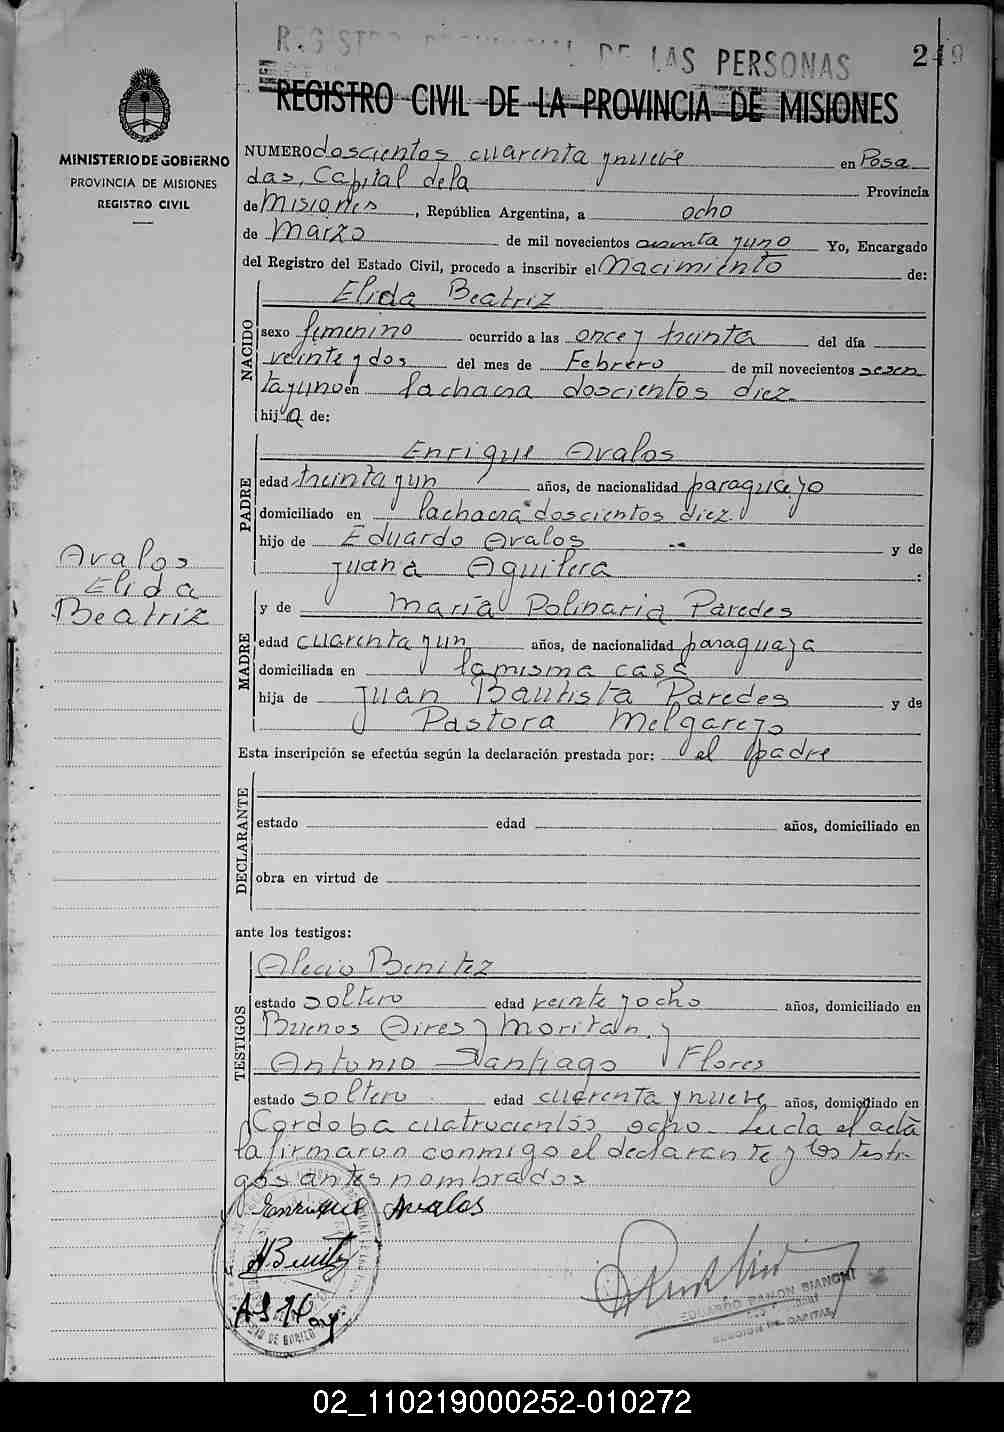 REGISTRO PROVINCIAL DE LAS PERSONAS
249
REGISTRO CIVIL DE LA PROVINCIA DE MISIONES
MINISTERIO DE GOBIERNO
PROVINCIA DE MISIONES
REGISTRO CIVIL
NUMERO doscientos cuarenta y nueve en Posa
das, Capital de la Provincia
de Misiones, República Argentina, a ocho
de Marzo de mil novecientos sesenta y uno Yo, Encargado
del Registro del Estado Civil, procedo a inscribir el Nacimiento de:
NACIDO
Elida Beatriz
sexo femenino ocurrido a las once y treinta del día
veinte y dos del mes de Febrero de mil novecientos sesen
ta y uno en la chacra doscientos diez
hija de:
PADRE
Enrique Avalos
edad treinta y un años, de nacionalidad paraguayo
domiciliado en la chacra doscientos diez
hijo de Eduardo Avalos y de
Juana Aguilera :
MADRE
y de María Polinaria Paredes
edad cuarenta y un años, de nacionalidad paraguaya
domiciliada en la misma casa
hija de Juan Bautista Paredes y de
Pastora Melgarejo
Avalos
Elida
Beatriz
Esta inscripción se efectúa según la declaración prestada por: el padre
DECLARANTE
estado edad años, domiciliado en
obra en virtud de
ante los testigos:
TESTIGOS
Alecio Benitez
estado soltero edad veinte y ocho años, domiciliado en
Buenos Aires y Moritan y
Antonio Santiago Flores
estado soltero edad cuarenta y nueve años, domiciliado en
Cordoba cuatrocientos ocho. Leida el acta
la firmaron conmigo el declarante y los testi-
gos antes nombrados
Enrique Avalos
A Benitez
EDUARDO RAMON BIANCHI
SECCION CAPITAL
02_110219000252-010272